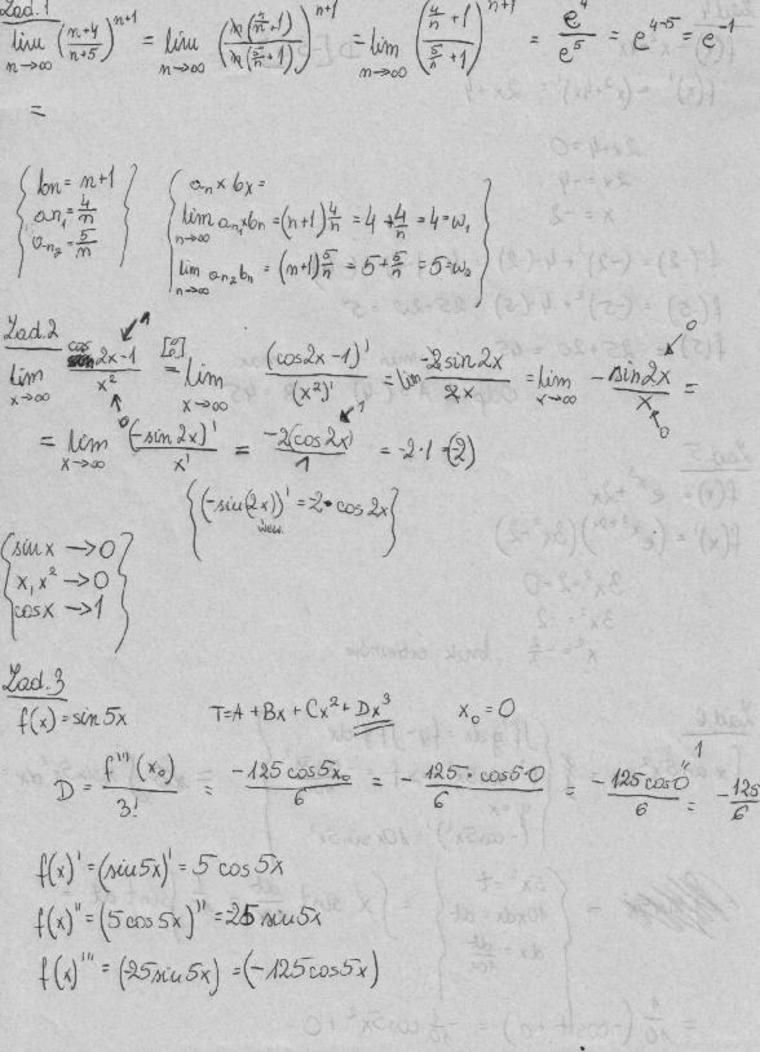 Zad.1
lim n→∞ ((n+4)/(n+5))^(n+1) = lim n→∞ ((n(4/n+1))/(n(5/n+1)))^(n+1) = lim n→∞ ((4/n+1)/(5/n+1))^(n+1) = e^4/e^5 = e^(4-5) = e^(-1)
=
{ bn = n+1
an₁ = 4/n
an₂ = 5/n }
{ an × bx =
lim n→∞ an₁×bn = (n+1) 4/n = 4 + 4/n = 4 = w₁
lim n→∞ an₂ bn = (n+1) 5/n = 5 + 5/n = 5 = w₂ }
Zad.2
lim x→∞ (cos 2x-1)/x² =[0/0] lim x→∞ (cos2x-1)'/(x²)' = lim -2sin2x/2x = lim x→∞ -sin2x/x =
= lim x→∞ (-sin2x)'/x' = -2(cos2x)/1 = -2·1 = (-2)
{ (-sin(2x))' = 2 · cos 2x }
wew.
{ sin x → 0
x, x² → 0
cos x → 1 }
Zad.3
f(x) = sin 5x T = A + Bx + Cx² + Dx³ x₀ = 0
D = f'''(x₀)/3! = -125cos5x₀/6 = -125·cos5·0/6 = -125cos0/6 = -125/6
f(x)' = (sin5x)' = 5 cos 5x
f(x)'' = (5cos5x)'' = 25 sin5x
f(x)''' = (-25sin5x) = (-125cos5x)